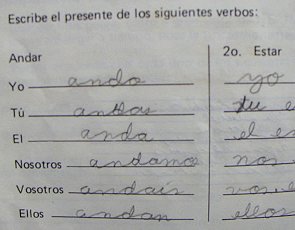 Escribe el presente de los siguientes verbos:
Andar 2o. Estar
Yo ando yo
Tù andas tu e
El anda el e
Nosotros andamos nos
Vosotros andais vos. e
Ellos andan ellos